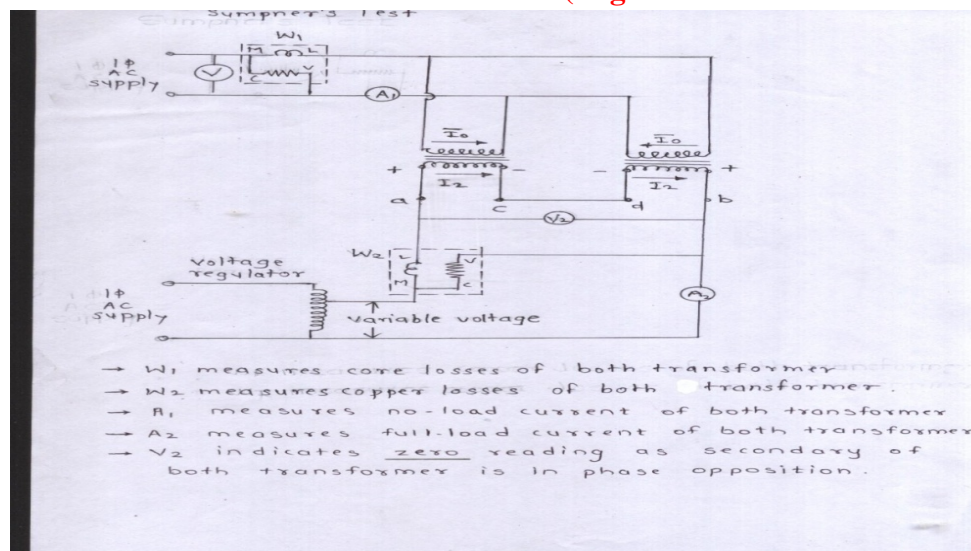 Sumpner's Test
W1
M L
C V
1ϕ
AC
supply
V
A1
I0
I0
+ - - +
I2
I2
a c d b
V2
W2 L V
M C
voltage
regulator
1ϕ
AC
supply
variable voltage
A2
→ W1 measures core losses of both transformer
→ W2 measures copper losses of both transformer.
→ A1 measures no-load current of both transformer
→ A2 measures full-load current of both transformer
→ V2 indicates zero reading as secondary of
both transformer is in phase opposition.